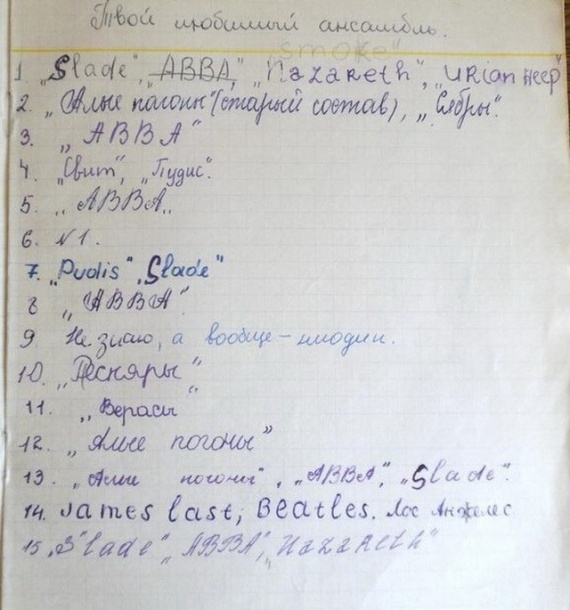 Твой любимый ансамбль.
"Smoke"
1 „Slade", „ABBA", „Nazareth", „URian HEEP"
2. „Алые погоны" (старый состав), „Сябры".
3. „ABBA"
4. „Свит", „Пудис".
5. „ABBA„
6. N 1.
7. „Pudis" „Slade"
8 „ABBA".
9 Не знаю, а вообще –
10. „Песняры"
11. „Верасы"
12. „Алые погоны"
13. „Алые погоны", „ABBA", „Slade".
14. James last, Beatles. Лос Анжелес
15. „Slade" „ABBA", „Nazareth"